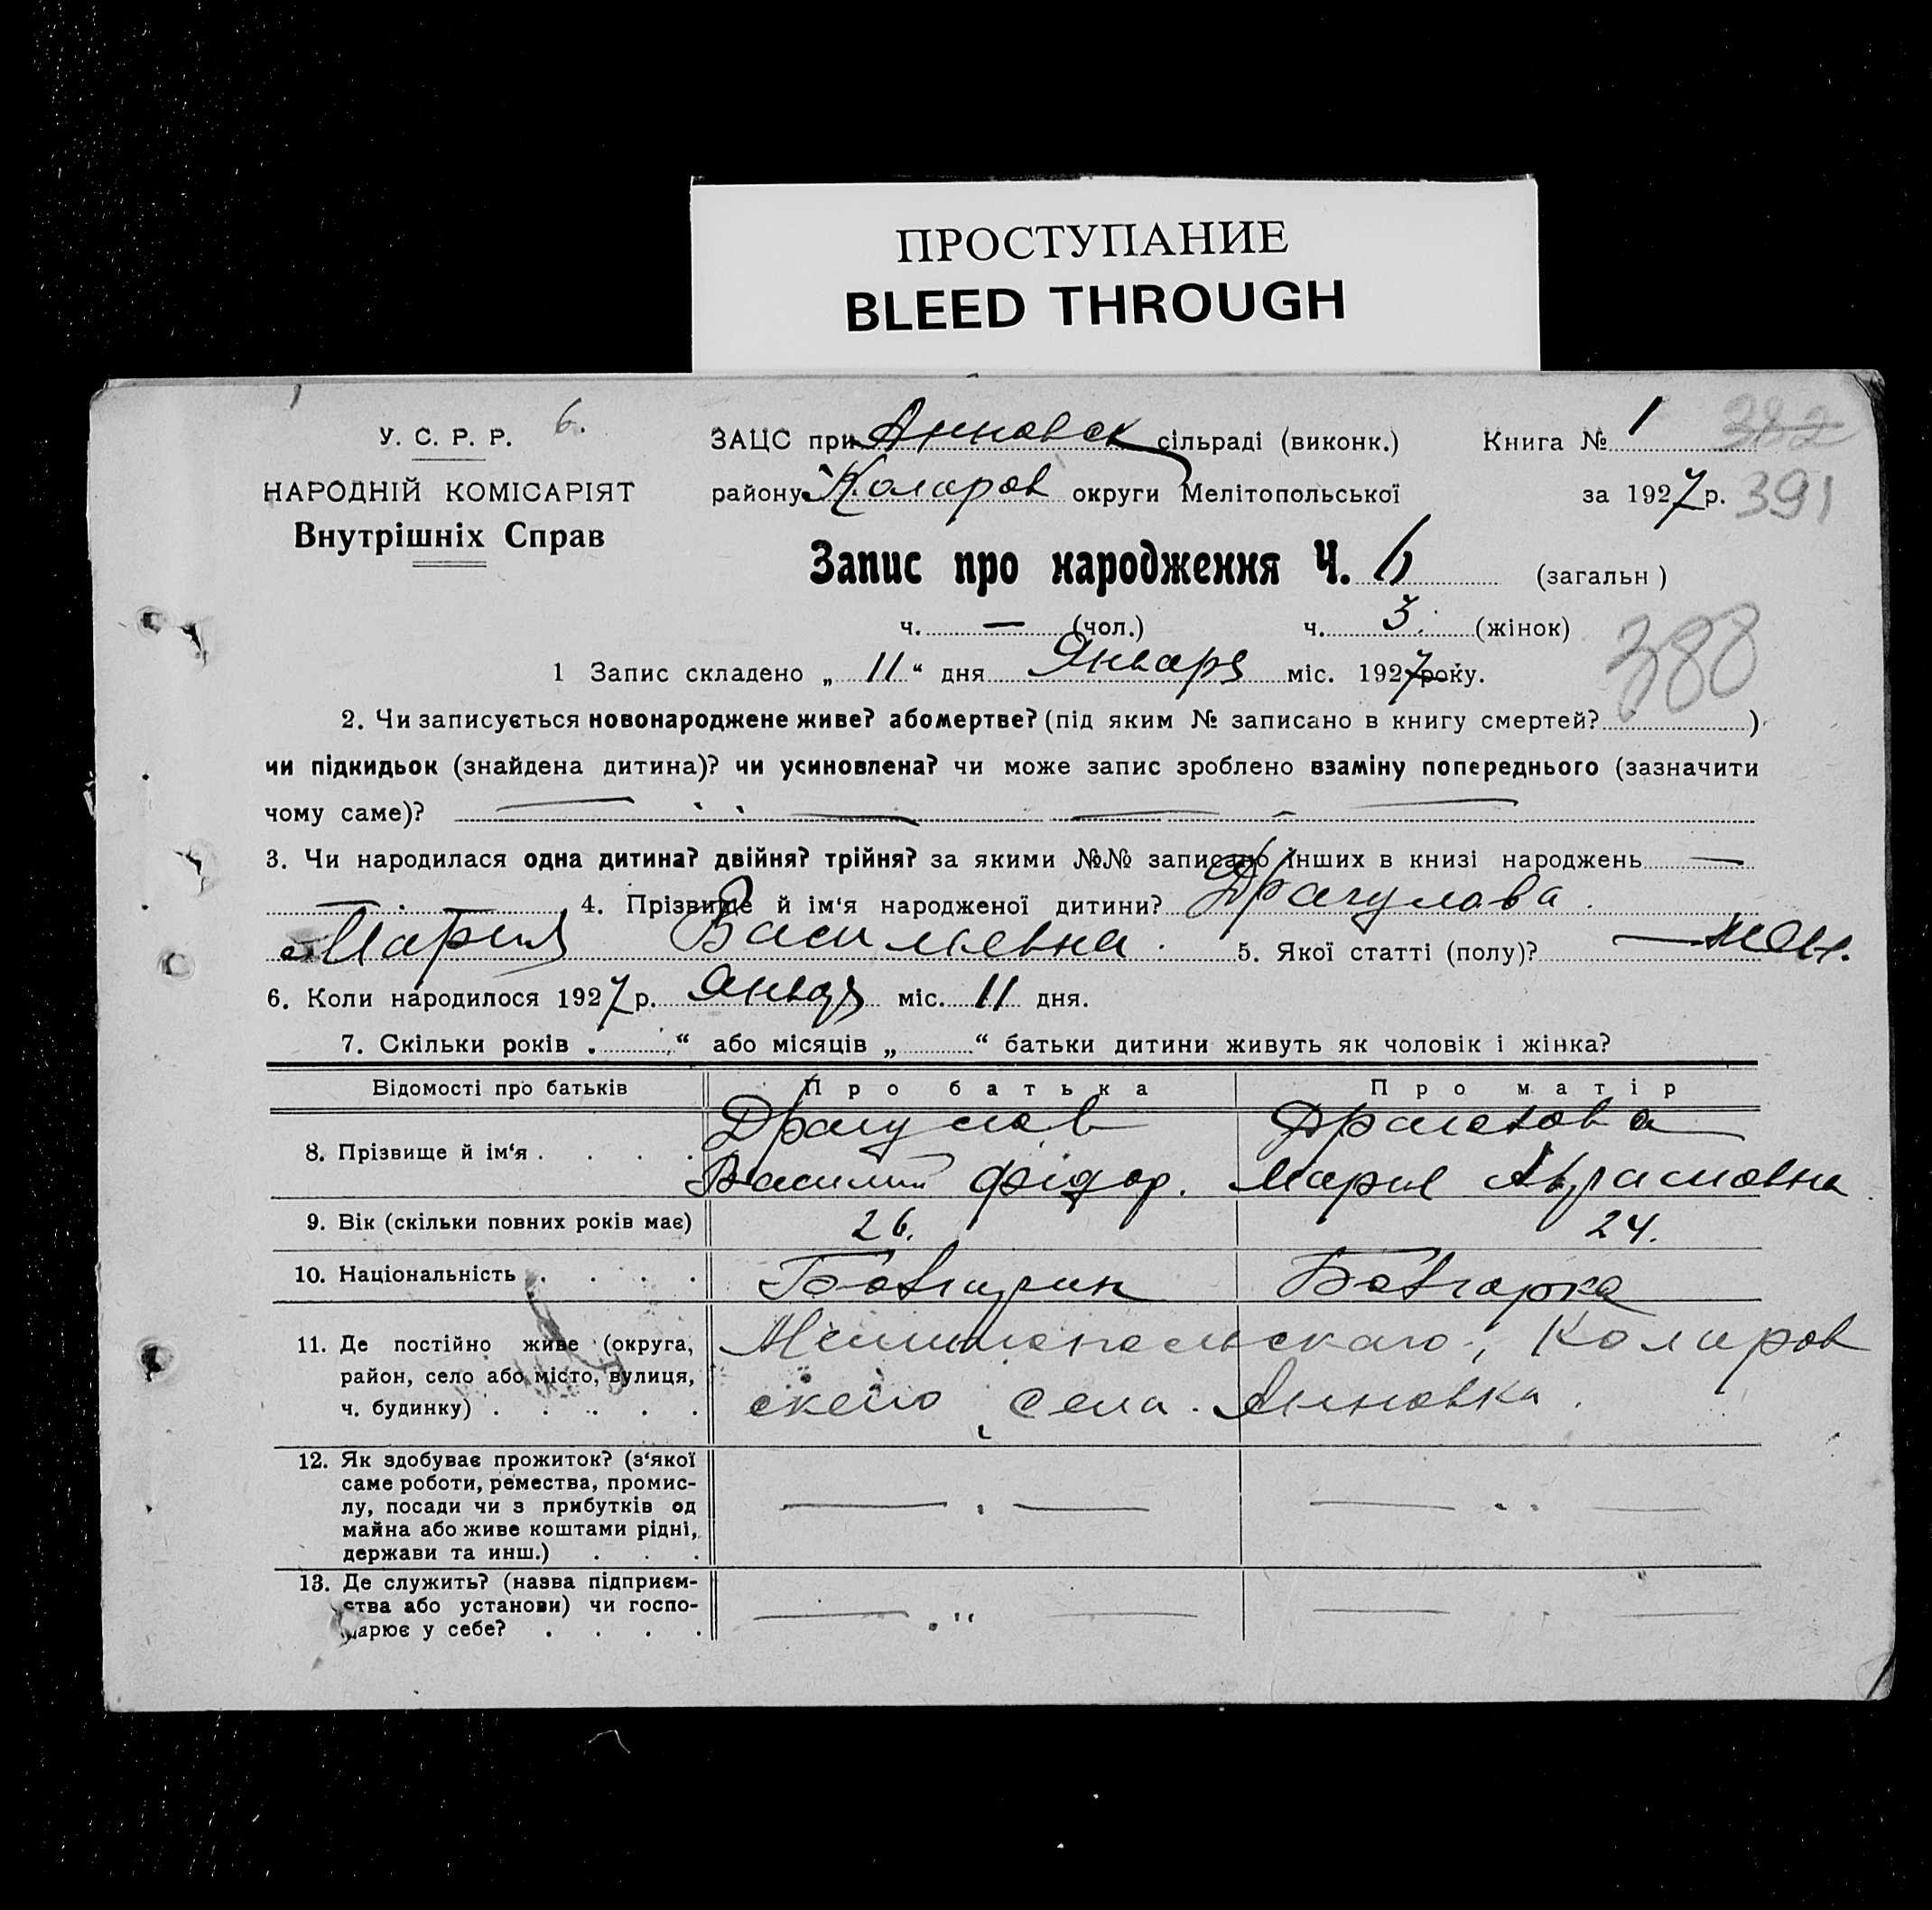 ПРОСТУПАНИЕ
BLEED THROUGH
6.
У. С. Р. Р.
НАРОДНІЙ КОМІСАРІЯТ
Внутрішніх Справ
ЗАЦС при Анновск сільраді (виконк.) Книга № 1 382
району Коларов округи Мелітопольської за 1927 р. 391
Запис про народження Ч. 6 (загальн)
ч. — (чол.) ч. 3. (жінок)
388
1 Запис складено „ 11 “ дня Января міс. 1927 року.
2. Чи записується новонароджене живе? або мертве? (під яким № записано в книгу смертей? )
чи підкидьок (знайдена дитина)? чи усиновлена? чи може запис зроблено взаміну попереднього (зазначити
чому саме)?
3. Чи народилася одна дитина? двійня? трійня? за якими №№ записано інших в книзі народжень —
4. Прізвище й ім'я народженої дитини? Драгулова
Мария Васильевна. 5. Якої статті (полу)? жен.
6. Коли народилося 1927 р. Январ міс. 11 дня.
7. Скільки років „ “ або місяців „ “ батьки дитини живуть як чоловік і жінка?
Відомості про батьків Про батька Про матір
8. Прізвище й ім'я . . . . Драгулов
Василий Фідор. Мария
9. Вік (скільки повних років має) 26. 24.
10. Національність . . . . Бовгарин Бовгарка
11. Де постійно живе (округа, Мелитопольскаго, Коларов
район, село або місто, вулиця, ского села. Анновка.
ч. будинку) . . . . .
12. Як здобуває прожиток? (з'якої
саме роботи, ремества, промис-
лу, посади чи з прибутків од
майна або живе коштами рідні,
держави та инш.) . . .
13. Де служить? (назва підприєм-
ства або установи) чи госпо-
дарює у себе? . . . .